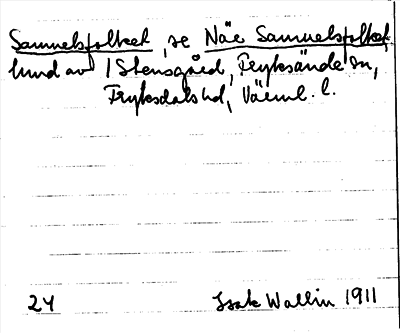 Samuelsfolket, se Näe Samuelsfolket,
hund av 1 Stensgård, Fryksände sn,
Fryksdals hd, Värml. l.
24 Isak Wallin 1911